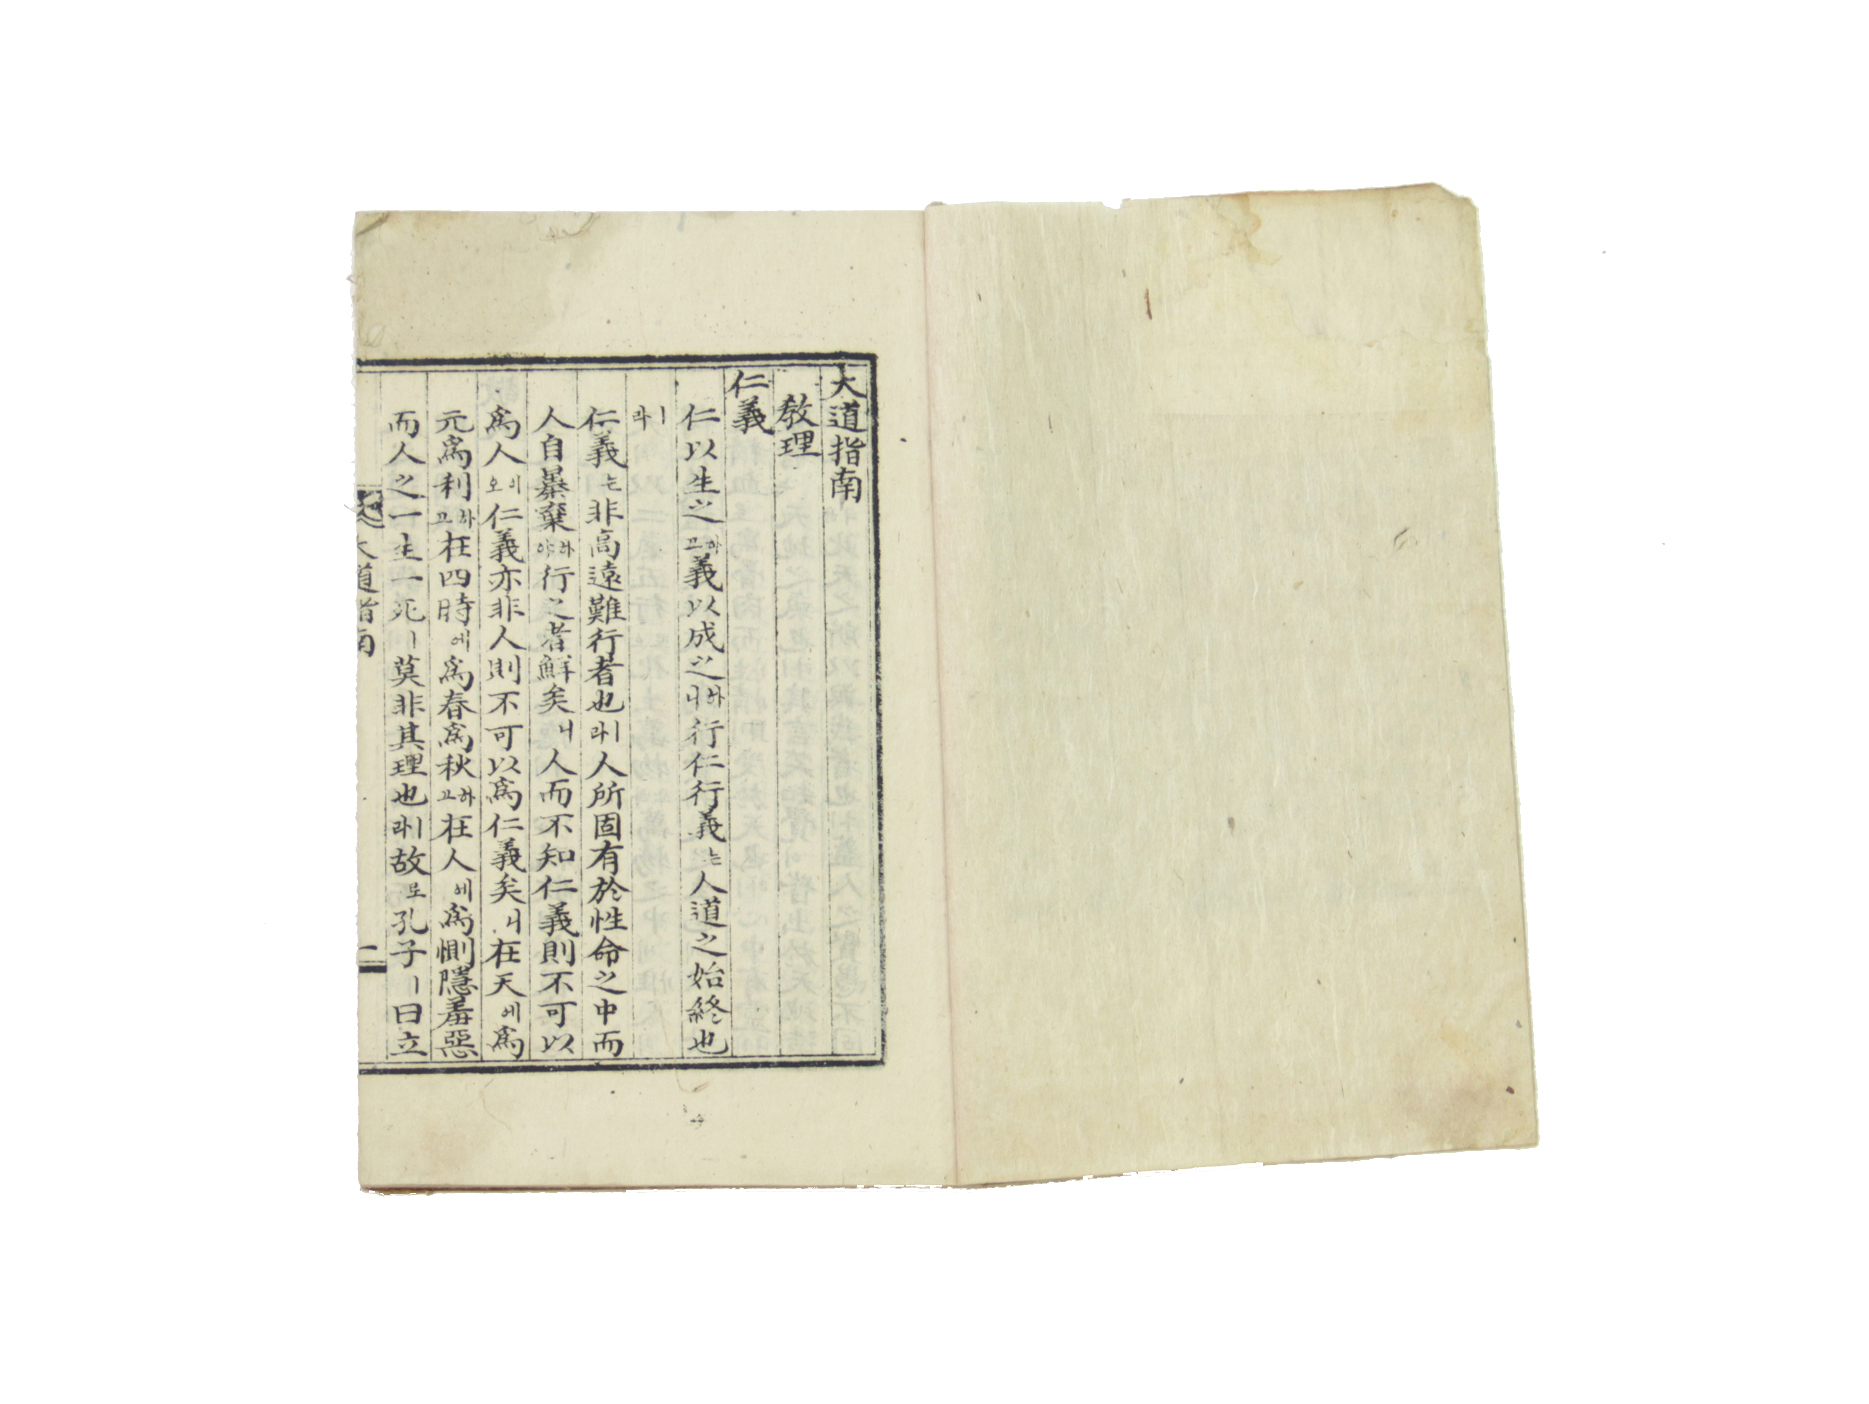 大道指南
敎理
仁義
仁以生之하고義以成之하니行仁行義는人道之始終也
ㅣ라
仁義는非高遠難行者也ㅣ라人所固有於性命之中而
人自暴棄하야行之者鮮矣니人而不知仁義則不可以
爲人이오仁義亦非人則不可以爲仁義矣니在天에爲
元爲利하고在四時에爲春爲秋하고在人에爲惻隱羞惡
而人之一生一死ㅣ莫非其理也ㅣ라故로孔子ㅣ曰立
大道指南
一